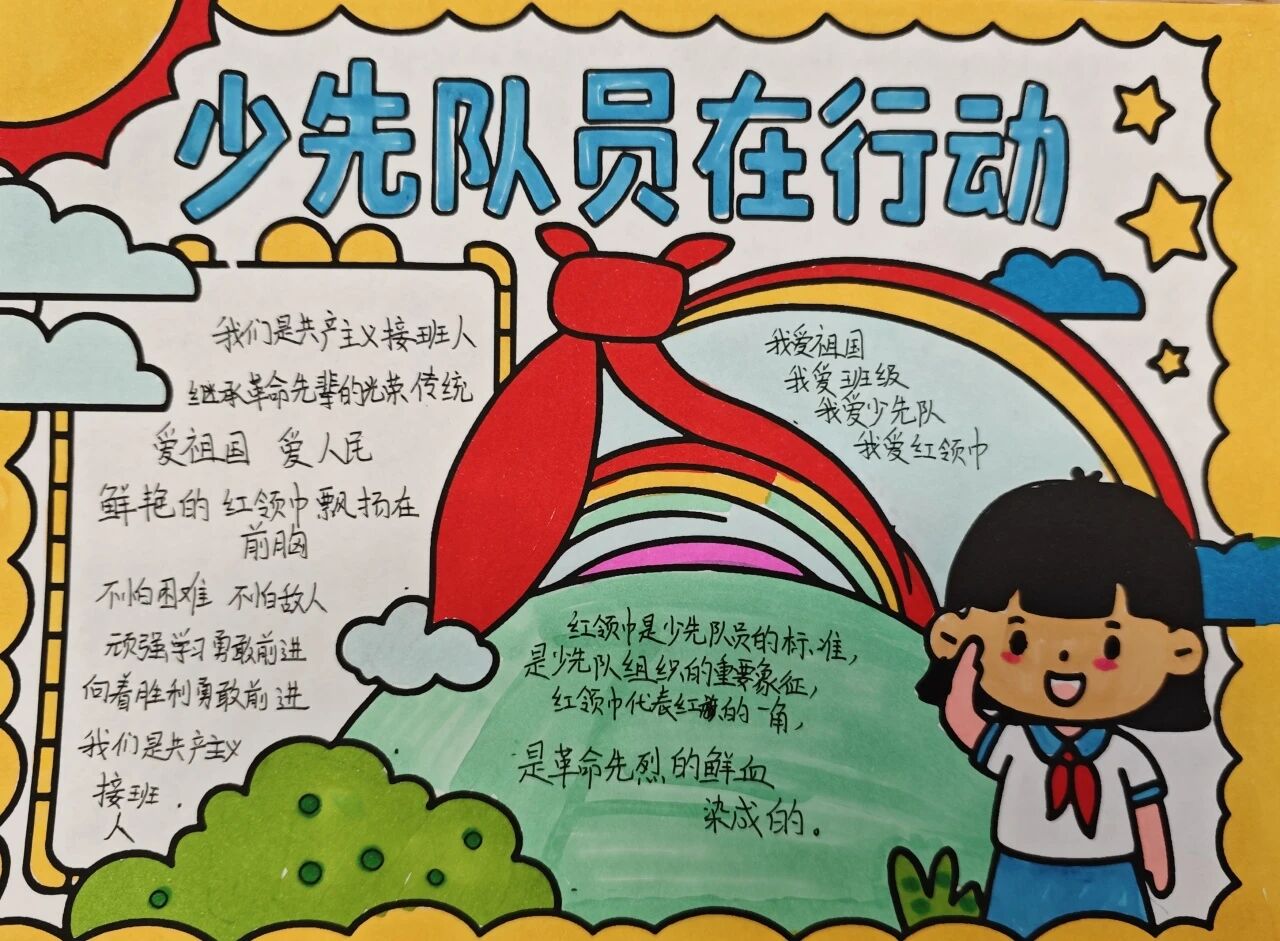 少先队员在行动
我们是共产主义接班人
继承革命先辈的光荣传统
爱祖国 爱人民
鲜艳的红领巾飘扬在
前胸
不怕困难 不怕敌人
顽强学习勇敢前进
向着胜利勇敢前进
我们是共产主义
接班.
人
我爱祖国
我爱班级
我爱少先队
我爱红领巾
红领巾是少先队员的标准,
是少先队组织的重要象征,
红领巾代表红旗的一角,
是革命先烈的鲜血
染成的。